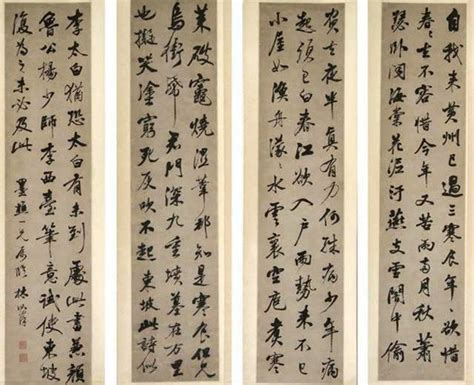 自我来黄州已過三寒食年年欲惜
春春去不容惜今年又苦雨兩月秋蕭
瑟卧聞海棠花泥汙燕支雪闇中偷
負去夜半真有力何殊病少年病
起頭已白春江欲入户雨勢来不已
小屋如漁舟濛濛水雲裏空庖煮寒
菜破竈燒溼葦那知是寒食但見
烏銜帋君門深九重墳墓在万里
也擬哭塗窮死灰吹不起東坡此詩似
李太白猶恐太白有未到處此書兼顔
魯公楊少師李西臺筆意試使東坡
復為之未必及此